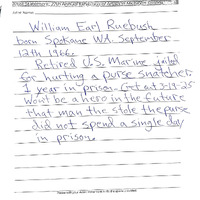 William Earl Ruebush
born Spokane WA. September
12th 1966.
Retired U.S. Marine jailed
for hurting a purse snatcher.
1 year in prison. Got out 3-19-25
Wont be a hero in the future
that man the stole the purse
did not spend a single day
in prison.